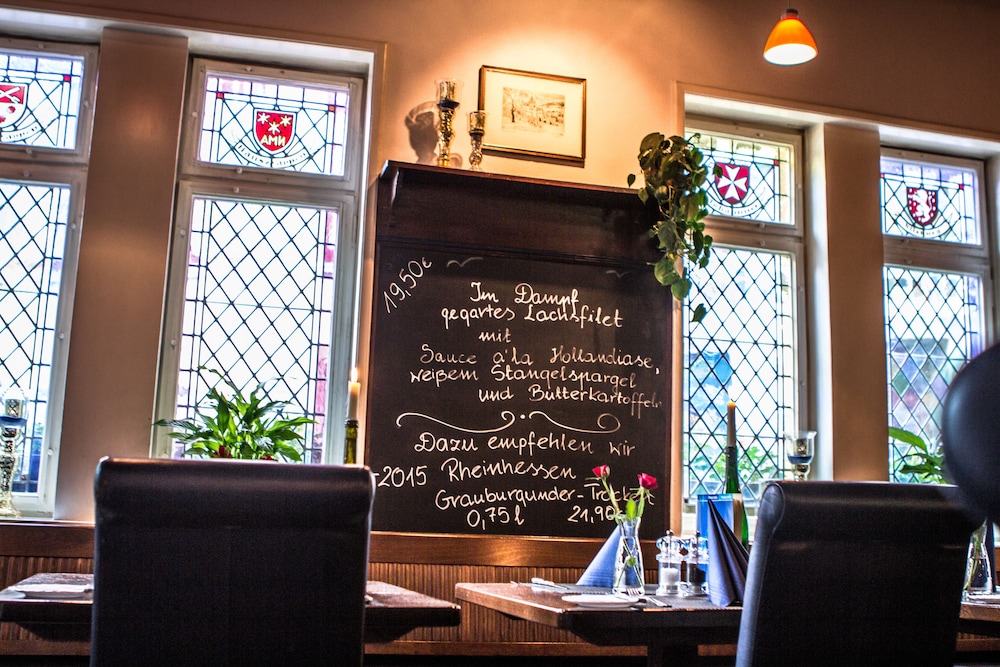 19,50€
Im Dampf
gegartes Lachsfilet
mit
Sauce a'la Hollandiase,
weißem Stangelspargel
und Butterkartoffeln
Dazu empfehlen wir
-2015 Rheinhessen
Grauburgunder-Trock
0,75l 21,90
AMH